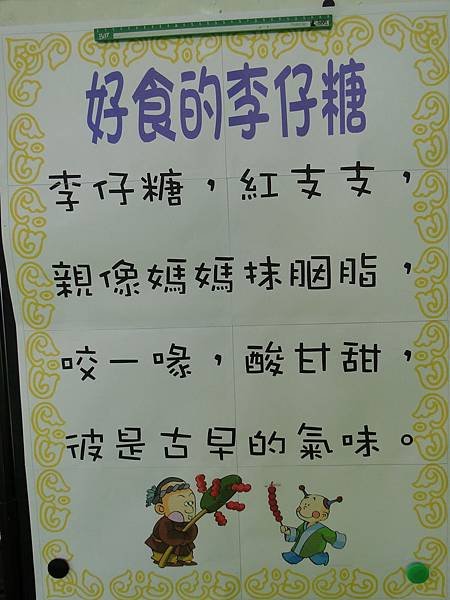 好食的李仔糖
李仔糖，紅支支，
親像媽媽抹胭脂，
咬一喙，酸甘甜，
彼是古早的氣味。